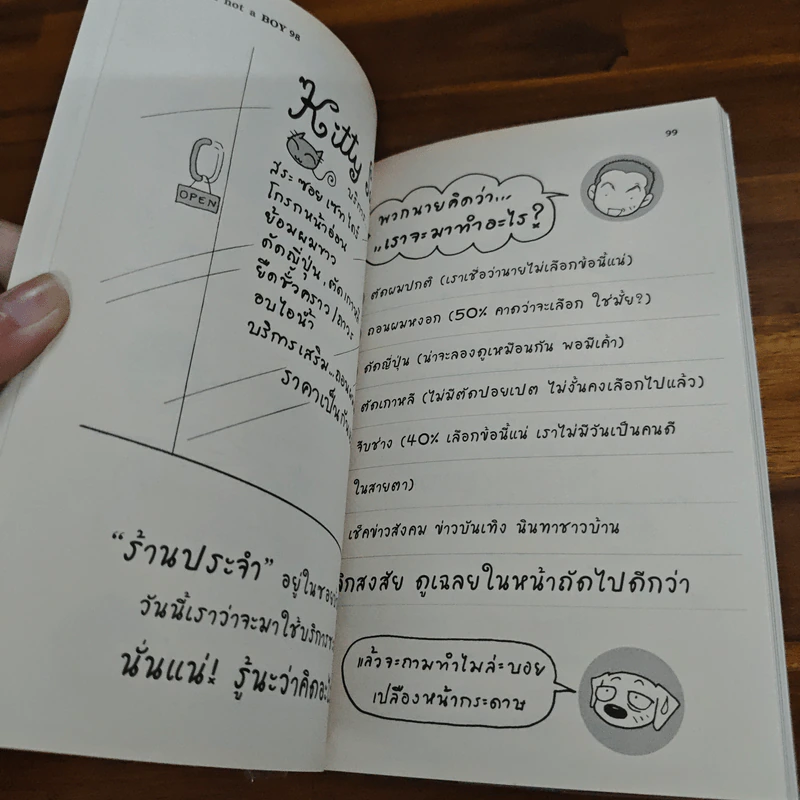 not a BOY 98
Kitty
OPEN
สระ ซอย เซท ไดร์
โกรกหน้าอ่อน
ย้อมผมขาว
ดัดญี่ปุ่น, ดัดเกาหลี
ยืดชั่วคราว/ถาวร
อบไอน้ำ
บริการเสริม...ถอน
ราคาเป็นกัน
"ร้านประจำ" อยู่ในซอย
วันนี้เราว่าจะมาใช้บริการ
นั่นแน่! รู้นะว่าคิดอะไร
99
พวกนายคิดว่า...
..เราจะมาทำอะไร?
ตัดผมปกติ (เราเชื่อว่านายไม่เลือกข้อนี้แน่)
ถอนผมหงอก (50% คาดว่าจะเลือก ใช่มั้ย?)
ดัดญี่ปุ่น (น่าจะลองดูเหมือนกัน พอมีเค้า)
ดัดเกาหลี (ไม่มีตัดปอยเปต ไม่งั้นคงเลือกไปแล้ว)
จีบช่าง (40% เลือกข้อนี้แน่ เราไม่มีวันเป็นคนดี
ในสายตา)
เช็คข่าวสังคม ข่าวบันเทิง นินทาชาวบ้าน
เลิกสงสัย ดูเฉลยในหน้าถัดไปดีกว่า
แล้วจะถามทำไมล่ะบอย
เปลืองหน้ากระดาษ